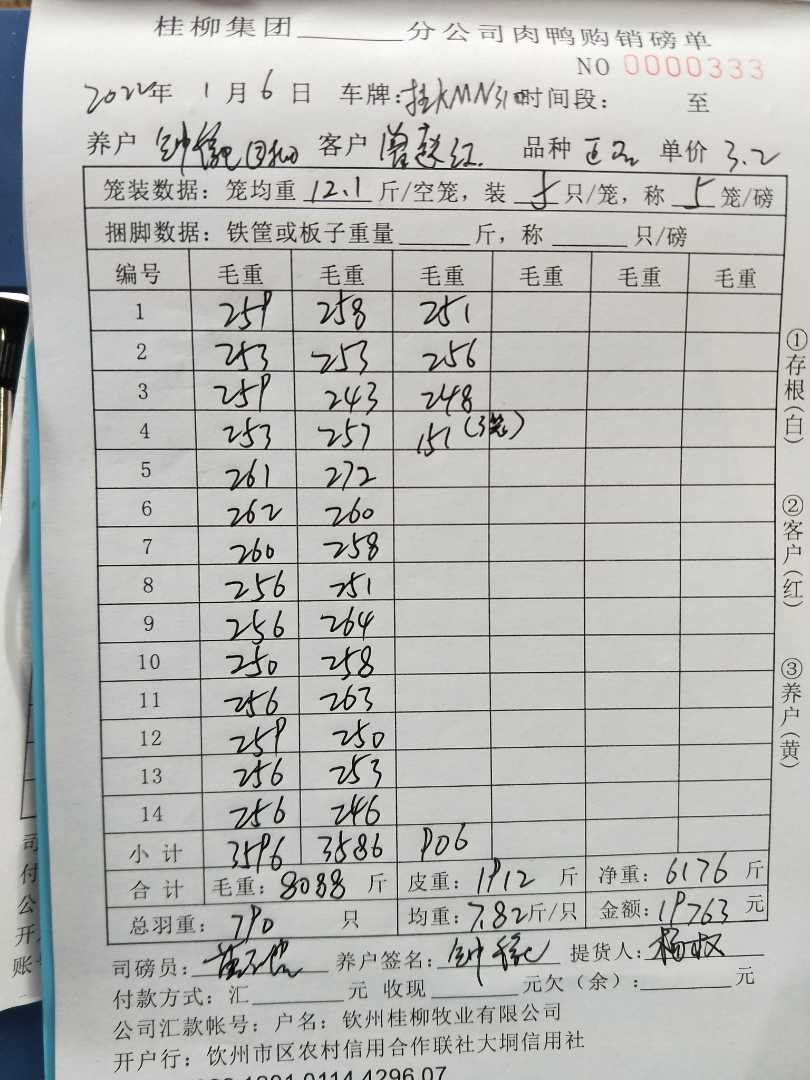 桂柳集团______分公司肉鸭购销磅单
NO 0000333
2022年 1月6日 车牌: 时间段: 至
养户 钟 客户 曾 红 品种 单价 3.2
笼装数据: 笼均重 12.1 斤/空笼, 装 5 只/笼, 称 5 笼/磅
捆脚数据: 铁筐或板子重量______斤, 称______只/磅
编号 毛重 毛重 毛重 毛重 毛重 毛重
1 259 258 251
2 253 253 256
3 259 243 248
4 253 257 151 (3笼)
5 261 272
6 262 260
7 260 258
8 256 251
9 256 264
10 250 258
11 256 263
12 259 250
13 256 253
14 256 246
小计 3596 3586 906
合计 毛重: 8088 斤 皮重: 1912 斤 净重: 6176 斤
总羽重: 790 只 均重: 7.82斤/只 金额: 19763 元
司磅员: 养户签名: 钟 提货人: 杨
付款方式: 汇______元 收现______元欠(余):______元
公司汇款帐号: 户名: 钦州桂柳牧业有限公司
开户行: 钦州市区农村信用合作联社大垌信用社
①存根(白)
②客户(红)
③养户(黄)